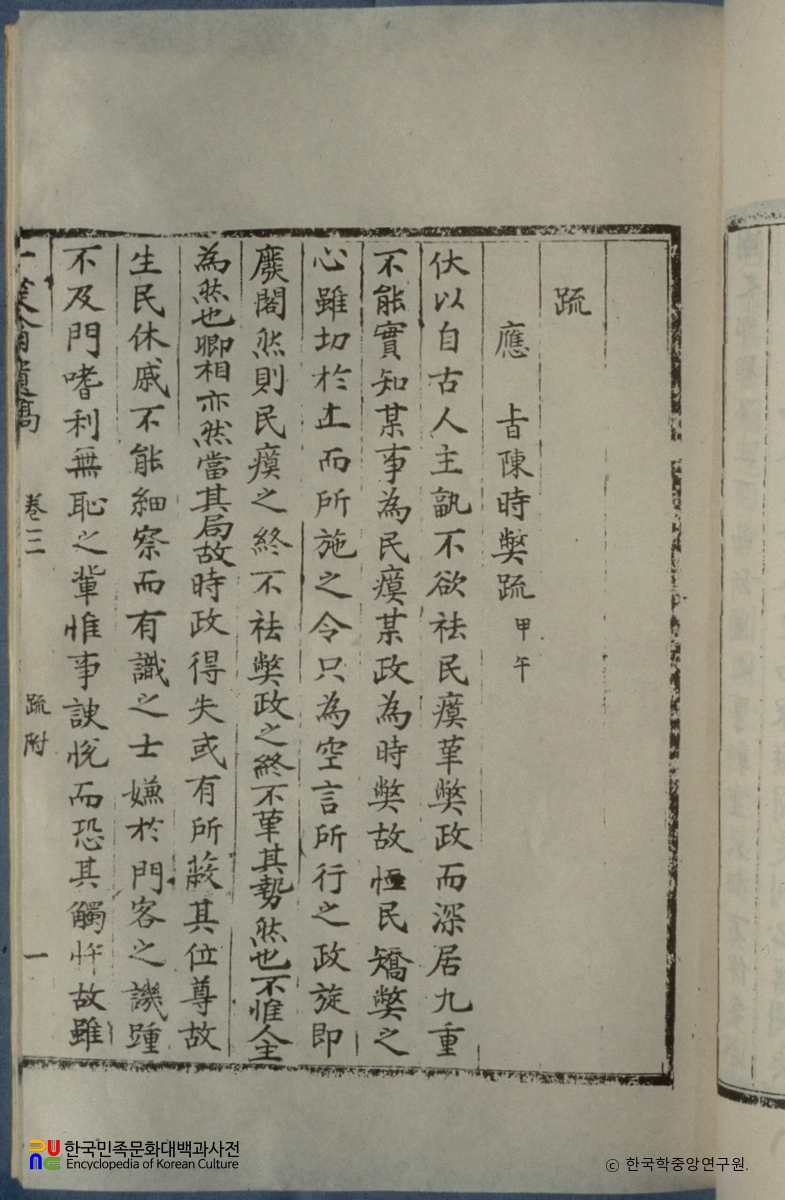 疏
應 旨陳時弊疏 甲午
伏以自古人主孰不欲祛民瘼革弊政而深居九重
不能實知某事為民瘼某政為時弊故恤民矯弊之
心雖切於上而所施之令只為空言所行之政旋即
廢閣然則民瘼之終不祛弊政之終不革其勢然也不惟人主
為然也卿相亦然當其局故時政得失或有所蔽其位尊故
生民休戚不能細察而有識之士嫌於門客之譏踵
不及門嗜利無恥之輩惟事諛悅而恐其觸忤故雖
遺稿 卷三 疏附 一
한국민족문화대백과사전
Encyclopedia of Korean Culture
ⓒ 한국학중앙연구원.